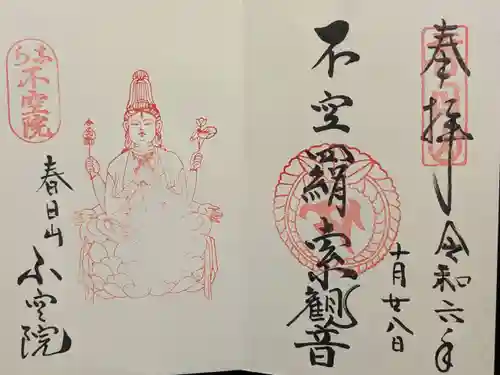 奉拝
令和六年
十月廿八日
不空羂索觀音
不空院
春日山
不空院